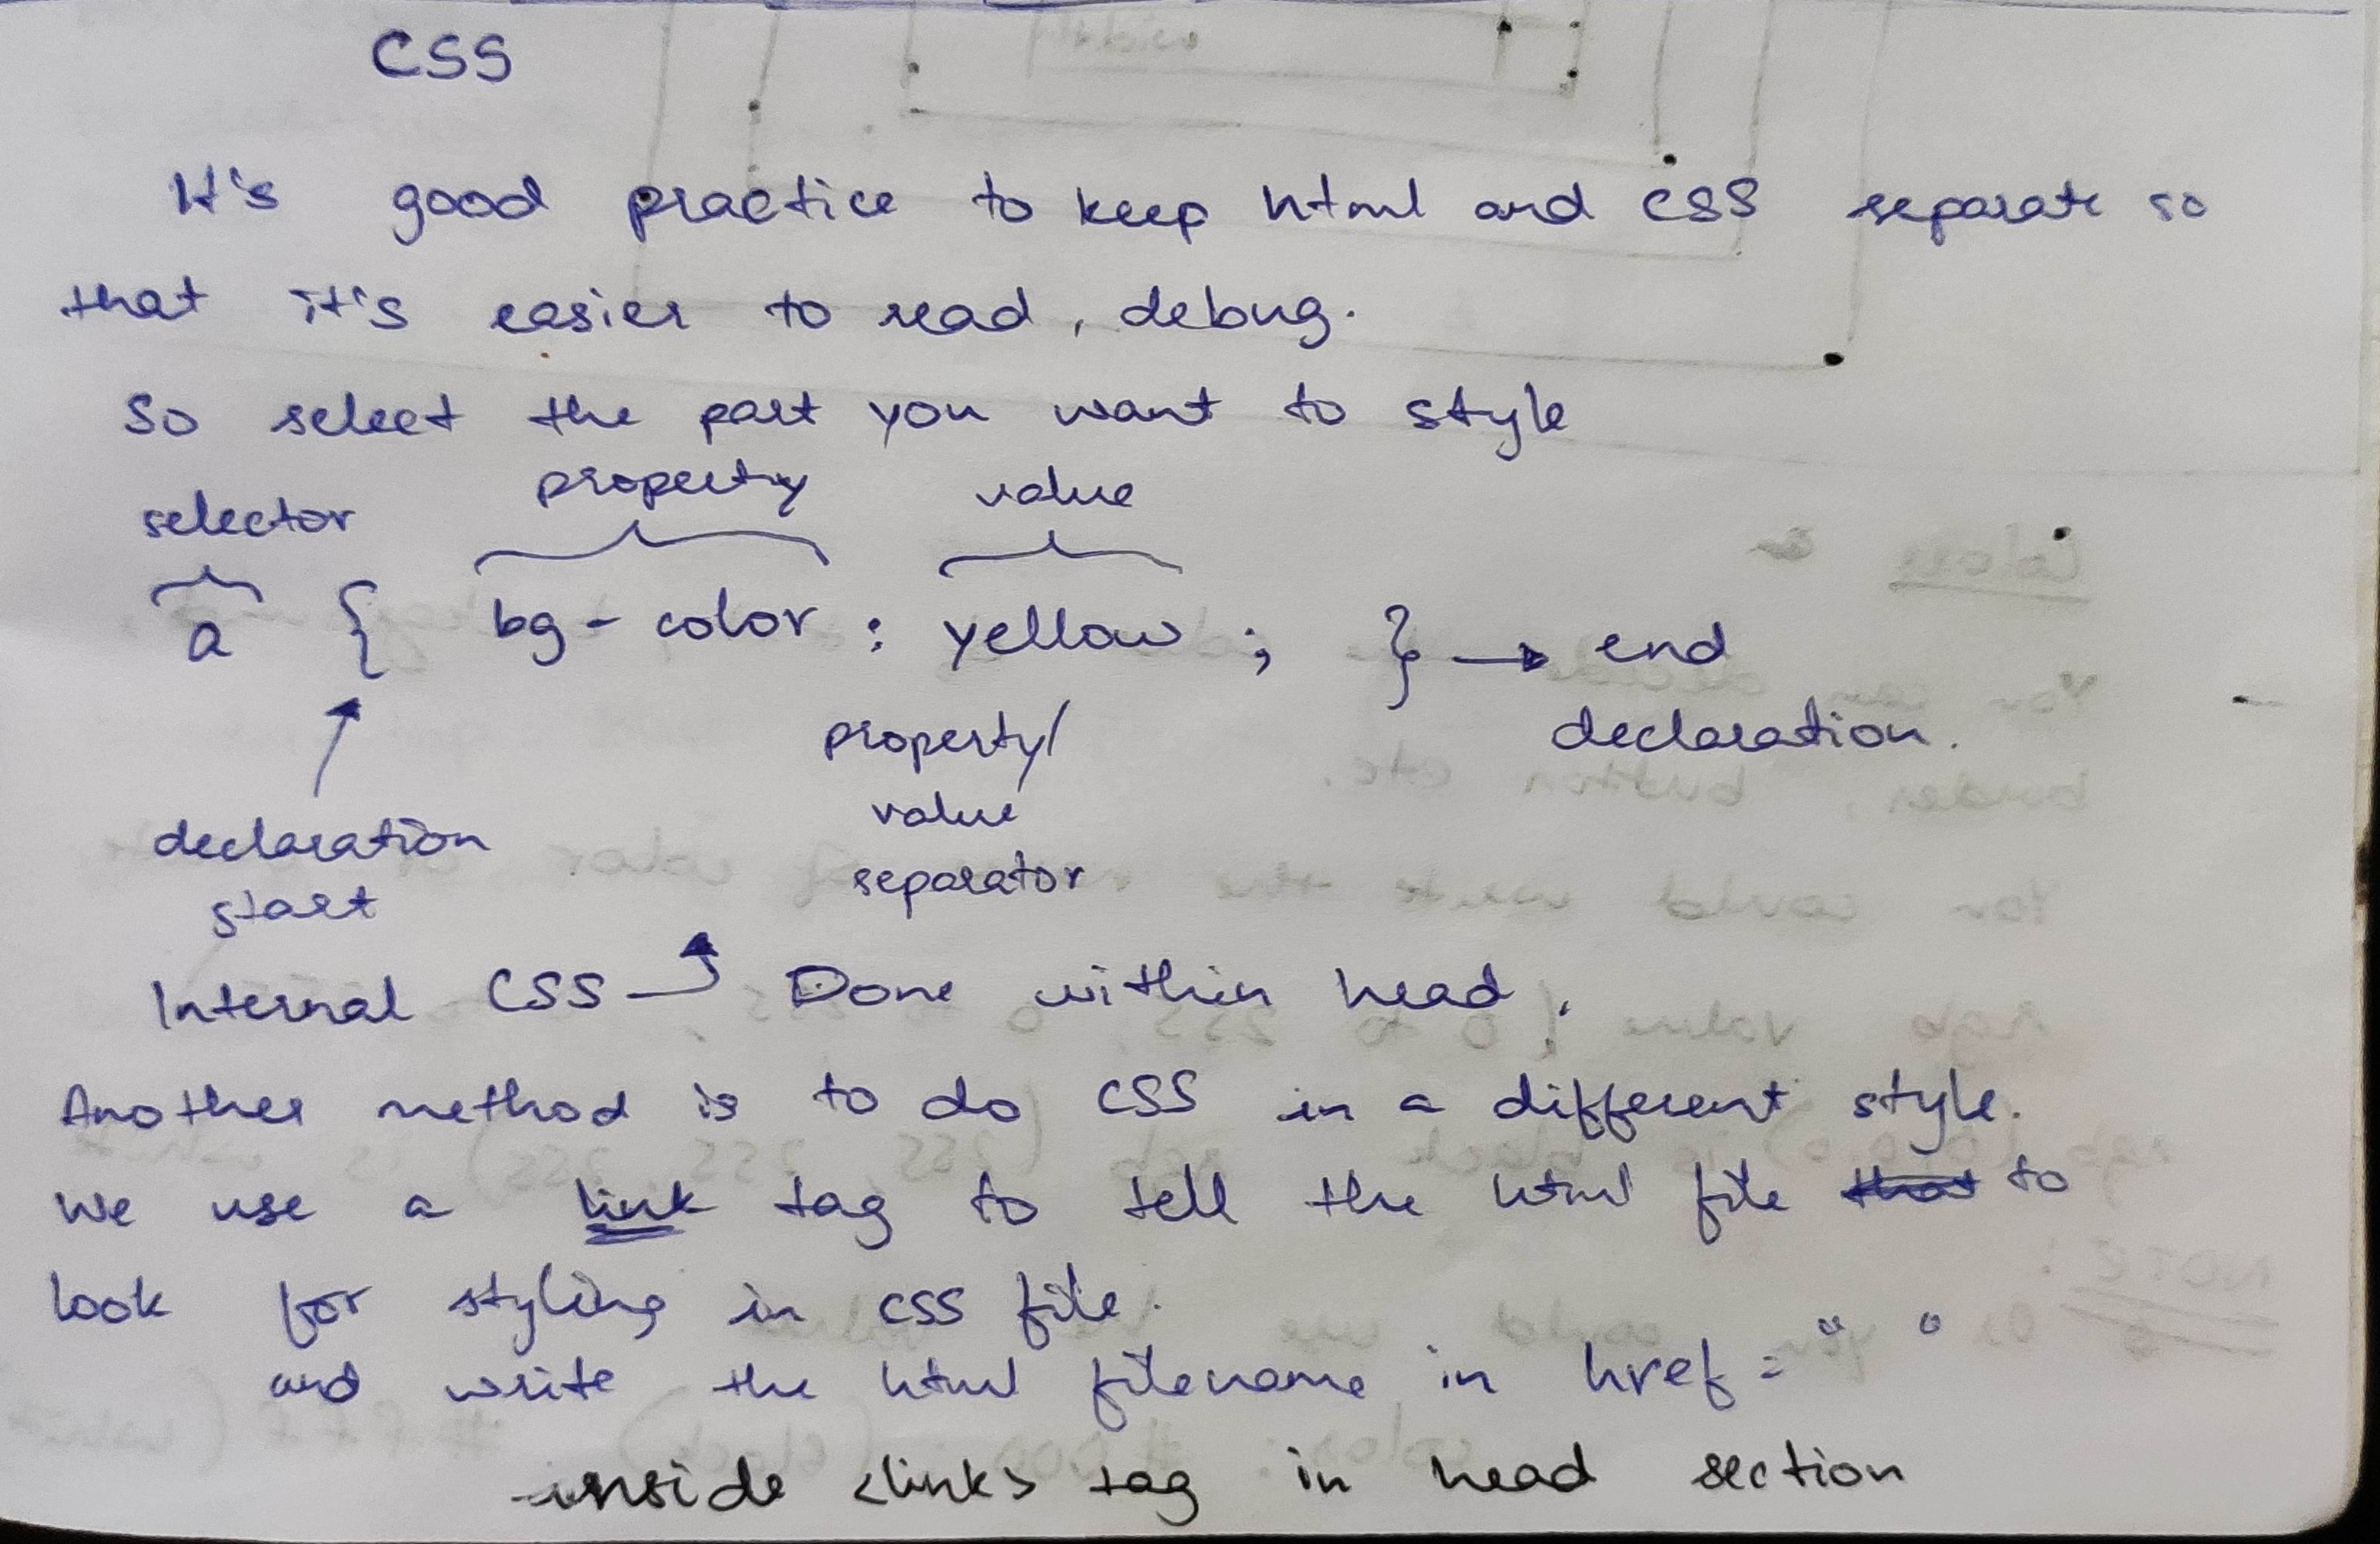 CSS
It's good practice to keep html and CSS separate so
that it's easier to read, debug.
So select the part you want to style
selector property value
a { bg-color : yellow ; } → end
declaration.
property/
value
separator
declaration
start
Internal CSS Done within head.
Another method is to do CSS in a different style.
We use a link tag to tell the html file that to
look for styling in css file.
and write the html filename in href = " "
inside <link> tag in head section